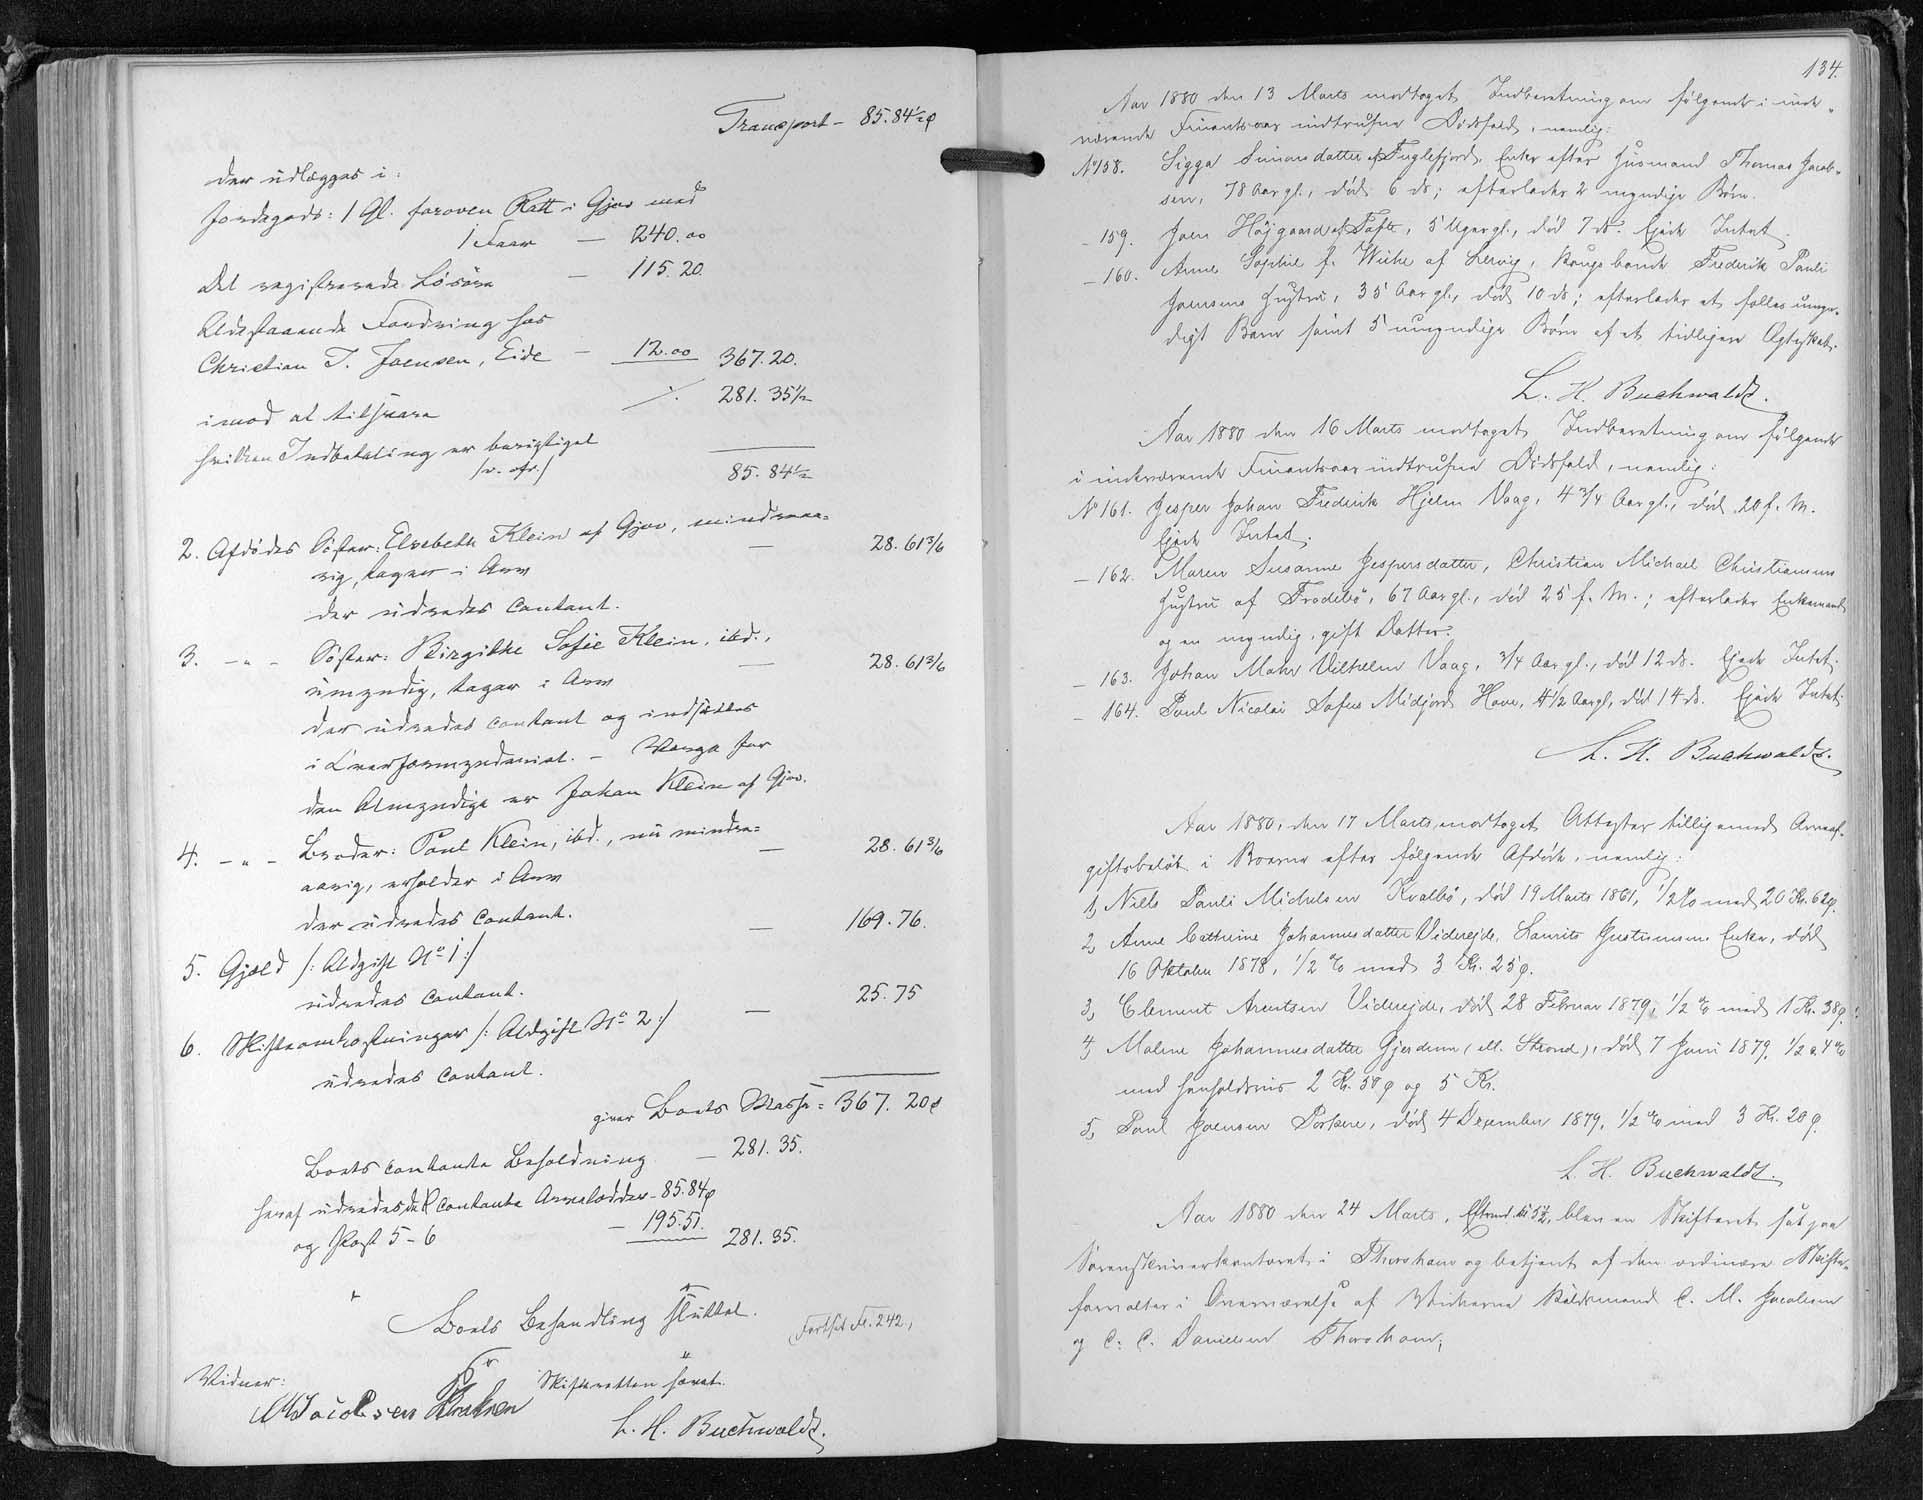 Transport - 85.84½ø
der udlægges i:
Jordegods: 1 Gl. foroven Ratt i Gjov med
1 Faar — 240.00
Det registrerede Løsøre — 115.20.
Udestaaende Fordring hos
Christian T. Joensen, Eide — 12.00 367.20.
imod at tilsvare ./. 281.35½
hvilken Indbetaling er berigtiget
/v. afr./ 85.84½
2. Afdødes Søster: Elsebeth Klein af Gjov, mindreaa=
rig, tager i Arv — 28.61 3/6
der udredes contant.
3. -"- Søster: Birgithe Sofie Klein, ibd.,
umyndig, tager i Arv — 28.61 3/6
der udredes contant og indsættes
i Overformynderiet. - Værge for
den Umyndige er Johan Klein af Gjov.
4. -"- Broder: Poul Klein, ibd., nu mindre=
aarig, erholder i Arv — 28.61 3/6
der udredes contant.
5. Gjæld /: Udgift No 1 :/ — 169.76.
udredes contant.
6. Skifteomkostninger /: Udgift No 2 :/ — 25.75
udredes contant.
giver Boets Masse = 367.20ø
Boets contante Beholdning — 281.35.
heraf udredes de contante Arvelodder - 85.84ø
og Post 5-6 — 195.51. 281.35.
Boets Behandling sluttet.
(Forts. Fl. 242.)
Skifteretten hævet.
Vidner:
L. H. Buchwaldt.
134.
Aar 1880 den 13 Marts modtoget Indberetning om følgende i inde-
værende Finantsaar indtrufne Dødsfald, nemlig:
No 158. Sigga Simonsdatter af Fuglefjord, Enke efter Husmand Thomas Jacob-
sen, 78 Aar gl., død 6 ds; efterlader 2 myndige Børn.
- 159. Joen Højgaard af Tofte, 5 Uger gl., død 7 ds. Ejede Intet.
- 160. Anne Sophie f. Wiihe af Lervig, Kongsbonde Frederik Pauli
Joensens Hustru, 35 Aar gl., død 10 ds; efterlader et fælles umyn-
digt Barn samt 5 umyndige Børn af et tidligere Ægteskab.
L. H. Buchwaldt.
Aar 1880 den 16 Marts modtoget Indberetning om følgende
i indeværende Finantsaar indtrufne Dødsfald, nemlig:
No 161. Jesper Johan Frederik Hjelm Vaag, 4 3/4 Aar gl., død 20 f. M.
Ejede Intet.
- 162. Maren Susanne Jespersdatter, Christian Michael Christiansens
Hustru af Frodebø, 67 Aar gl., død 25 f. M.; efterlader Enkemand
og en myndig, gift Datter.
- 163. Johan Mohr Vilhelm Vaag, 3/4 Aar gl., død 12 ds. Ejede Intet.
- 164. Poul Nicolai Sofus Midjord Hove, 4½ Aar gl., død 14 ds. Ejede Intet.
L. H. Buchwaldt.
Aar 1880, den 17 Marts, modtoget Attester tilligemed Arveaf-
giftsbeløb i Boerne efter følgende Afdøde, nemlig:
1, Niels Pauli Michelsen Kvalbø, død 19 Marts 1861, ½% med 20 Kr. 62ø.
2, Anne Cathrine Johannesdatter Viderejde, Laurits Justinussens Enke, død
16 Oktober 1878, ½% med 3 Kr. 25ø.
3, Clement Arentsen Viderejde, død 28 Februar 1879, ½% med 1 Kr. 38ø.
4, Malene Johannesdatter Gjerdum (ell. Strond), død 7 Juni 1879, ½ & 4%
med henholdsvis 2 Kr. 50ø og 5 Kr.
5, Poul Joensen Porkere, død 4 December 1879, ½% med 3 Kr. 20ø
L. H. Buchwaldt.
Aar 1880 den 24 Marts, Eftmd. Kl 5½, blev en Skifteret sat paa
Sorenskriverkontoret i Thorshavn og betjent af den ordinære Skifte-
forvalter i Overværelse af Vidnerne C. M. Jacobsen
og C. C. Danielsen Thorshavn;